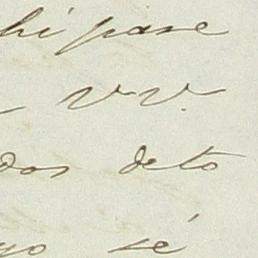 hi pase
VV.
dos de to
yo sé